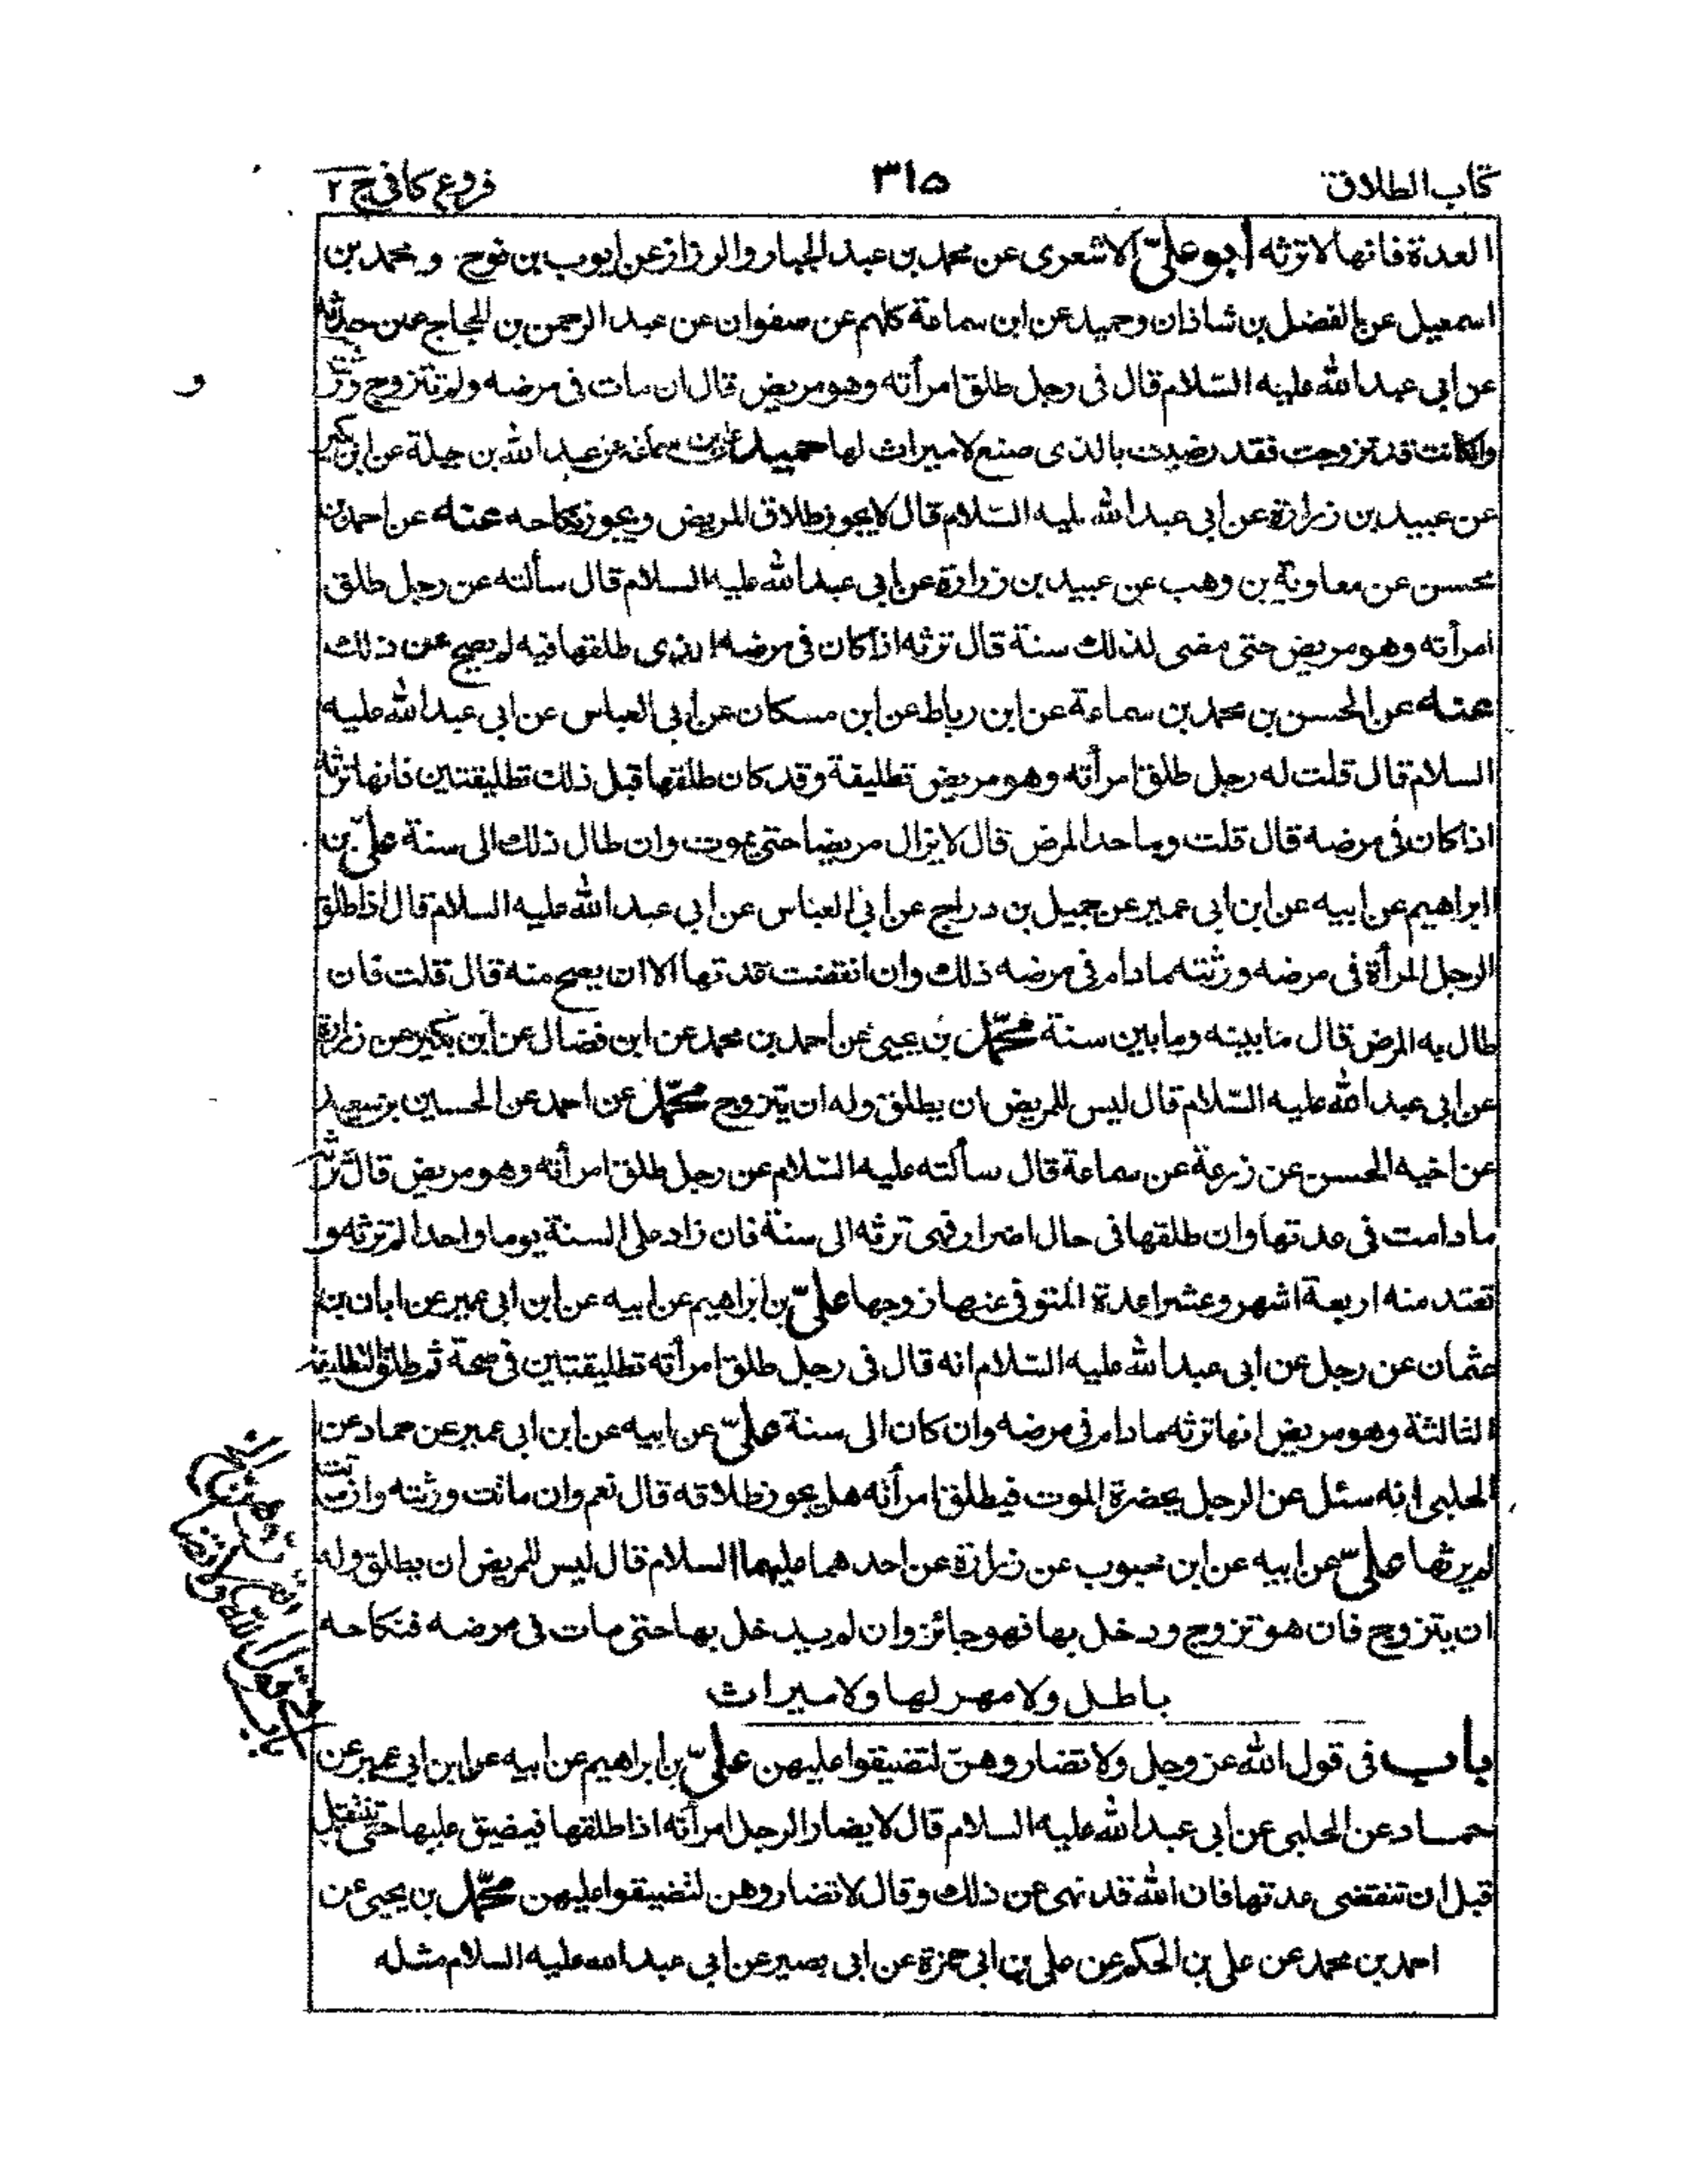 كتاب الطلاق
٣١٥
فروع كافى ج ٢
العدة فانها لا ترثه ابو على الاشعرى عن محمد بن عبد الجبار والرزاز عن ايوب بن نوح و محمد بن
اسمعيل عن الفضل بن شاذان وحميد عن ابن سماعة كلهم عن صفوان عن عبد الرحمن بن الحجاج عمن حدثه
عن ابى عبد الله عليه السّلام قال فى رجل طلق امرأته وهو مريض قال ان مات فى مرضه ولم تتزوج ورثته
وان كانت قد تزوجت فقد رضيت بالذى صنع لا ميراث لها حميد عن ابن سماعة عن عبد الله بن جبلة عن ابن بكير
عن عبيد بن زرارة عن ابى عبد الله عليه السّلام قال لا يجوز طلاق المريض ويجوز نكاحه عنه عن احمد بن
محسن عن معاوية بن وهب عن عبيد بن زرارة عن ابى عبد الله عليه السلام قال سألته عن رجل طلق
امرأته وهو مريض حتى مضى لذلك سنة قال ترثه اذا كان فى مرضه الذى طلقها فيه لم يصح عن ذلك
عنه عن الحسن بن محمد بن سماعة عن ابن رباط عن ابن مسكان عن ابى العباس عن ابى عبد الله عليه
السلام قال قلت له رجل طلق امرأته وهو مريض تطليقة وقد كان طلقها قبل ذلك تطليقتين فانها ترثه
اذا كان فى مرضه قال قلت وما حد المرض قال لا يزال مريضا حتى يموت وان طال ذلك الى سنة علىّ بن
ابراهيم عن ابيه عن ابن ابى عمير عن جميل بن دراج عن ابى العباس عن ابى عبد الله عليه السلام قال اذا طلق
الرجل المرأة فى مرضه ورثته ما دام فى مرضه ذلك وان انقضت عدتها الا ان يصح منه قال قلت فان
طال به المرض قال ما بينه وما بين سنة محمّد بن يحيى عن احمد بن محمد عن ابن فضال عن ابن بكير عن زرارة
عن ابى عبد الله عليه السّلام قال ليس للمريض ان يطلق وله ان يتزوج محمّد عن احمد عن الحسين بن سعيد
عن اخيه الحسن عن زرعة عن سماعة قال سألته عليه السّلام عن رجل طلق امرأته وهو مريض قال ترثه
ما دامت فى عدتها وان طلقها فى حال اضرار فهى ترثه الى سنة فان زاد على السنة يوما واحدا لم ترثه و
تعتد منه اربعة اشهر وعشرا عدة المتوفى عنها زوجها علىّ بن ابراهيم عن ابيه عن ابن ابى عمير عن ابان بن
عثمان عن رجل عن ابى عبد الله عليه السّلام انه قال فى رجل طلق امرأته تطليقتين فى صحة ثم طلق التطليقة
الثالثة وهو مريض انها ترثه ما دام فى مرضه وان كان الى سنة علىّ عن ابيه عن ابن ابى عمير عن حماد عن
الحلبى انه سئل عن الرجل يحضره الموت فيطلق امرأته هل يجوز طلاقه قال نعم وان مات ورثته وان ماتت
لم يرثها علىّ عن ابيه عن ابن محبوب عن زرارة عن احدهما عليهما السلام قال ليس للمريض ان يطلق وله
ان يتزوج فان هو تزوج ودخل بها فهو جائز وان لم يدخل بها حتى مات فى مرضه فنكاحه
باطل ولا مهر لها ولا ميراث
باب فى قول الله عز وجل ولا تضاروهنّ لتضيقوا عليهن علىّ بن ابراهيم عن ابيه عن ابن ابى عمير عن
حماد عن الحلبى عن ابى عبد الله عليه السلام قال لا يضار الرجل امرأته اذا طلقها فيضيق عليها حتى تنتقل
قبل ان تنقضى عدتها فان الله قد نهى عن ذلك وقال لا تضاروهن لتضيقوا عليهن محمّد بن يحيى عن
احمد بن محمد عن على بن الحكم عن على بن ابى حمزة عن ابى بصير عن ابى عبد الله عليه السلام مثله
و